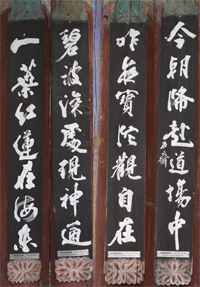 一葉紅蓮在海東
碧波深處現神通
昨夜寶陀觀自在
今朝降赴道場中